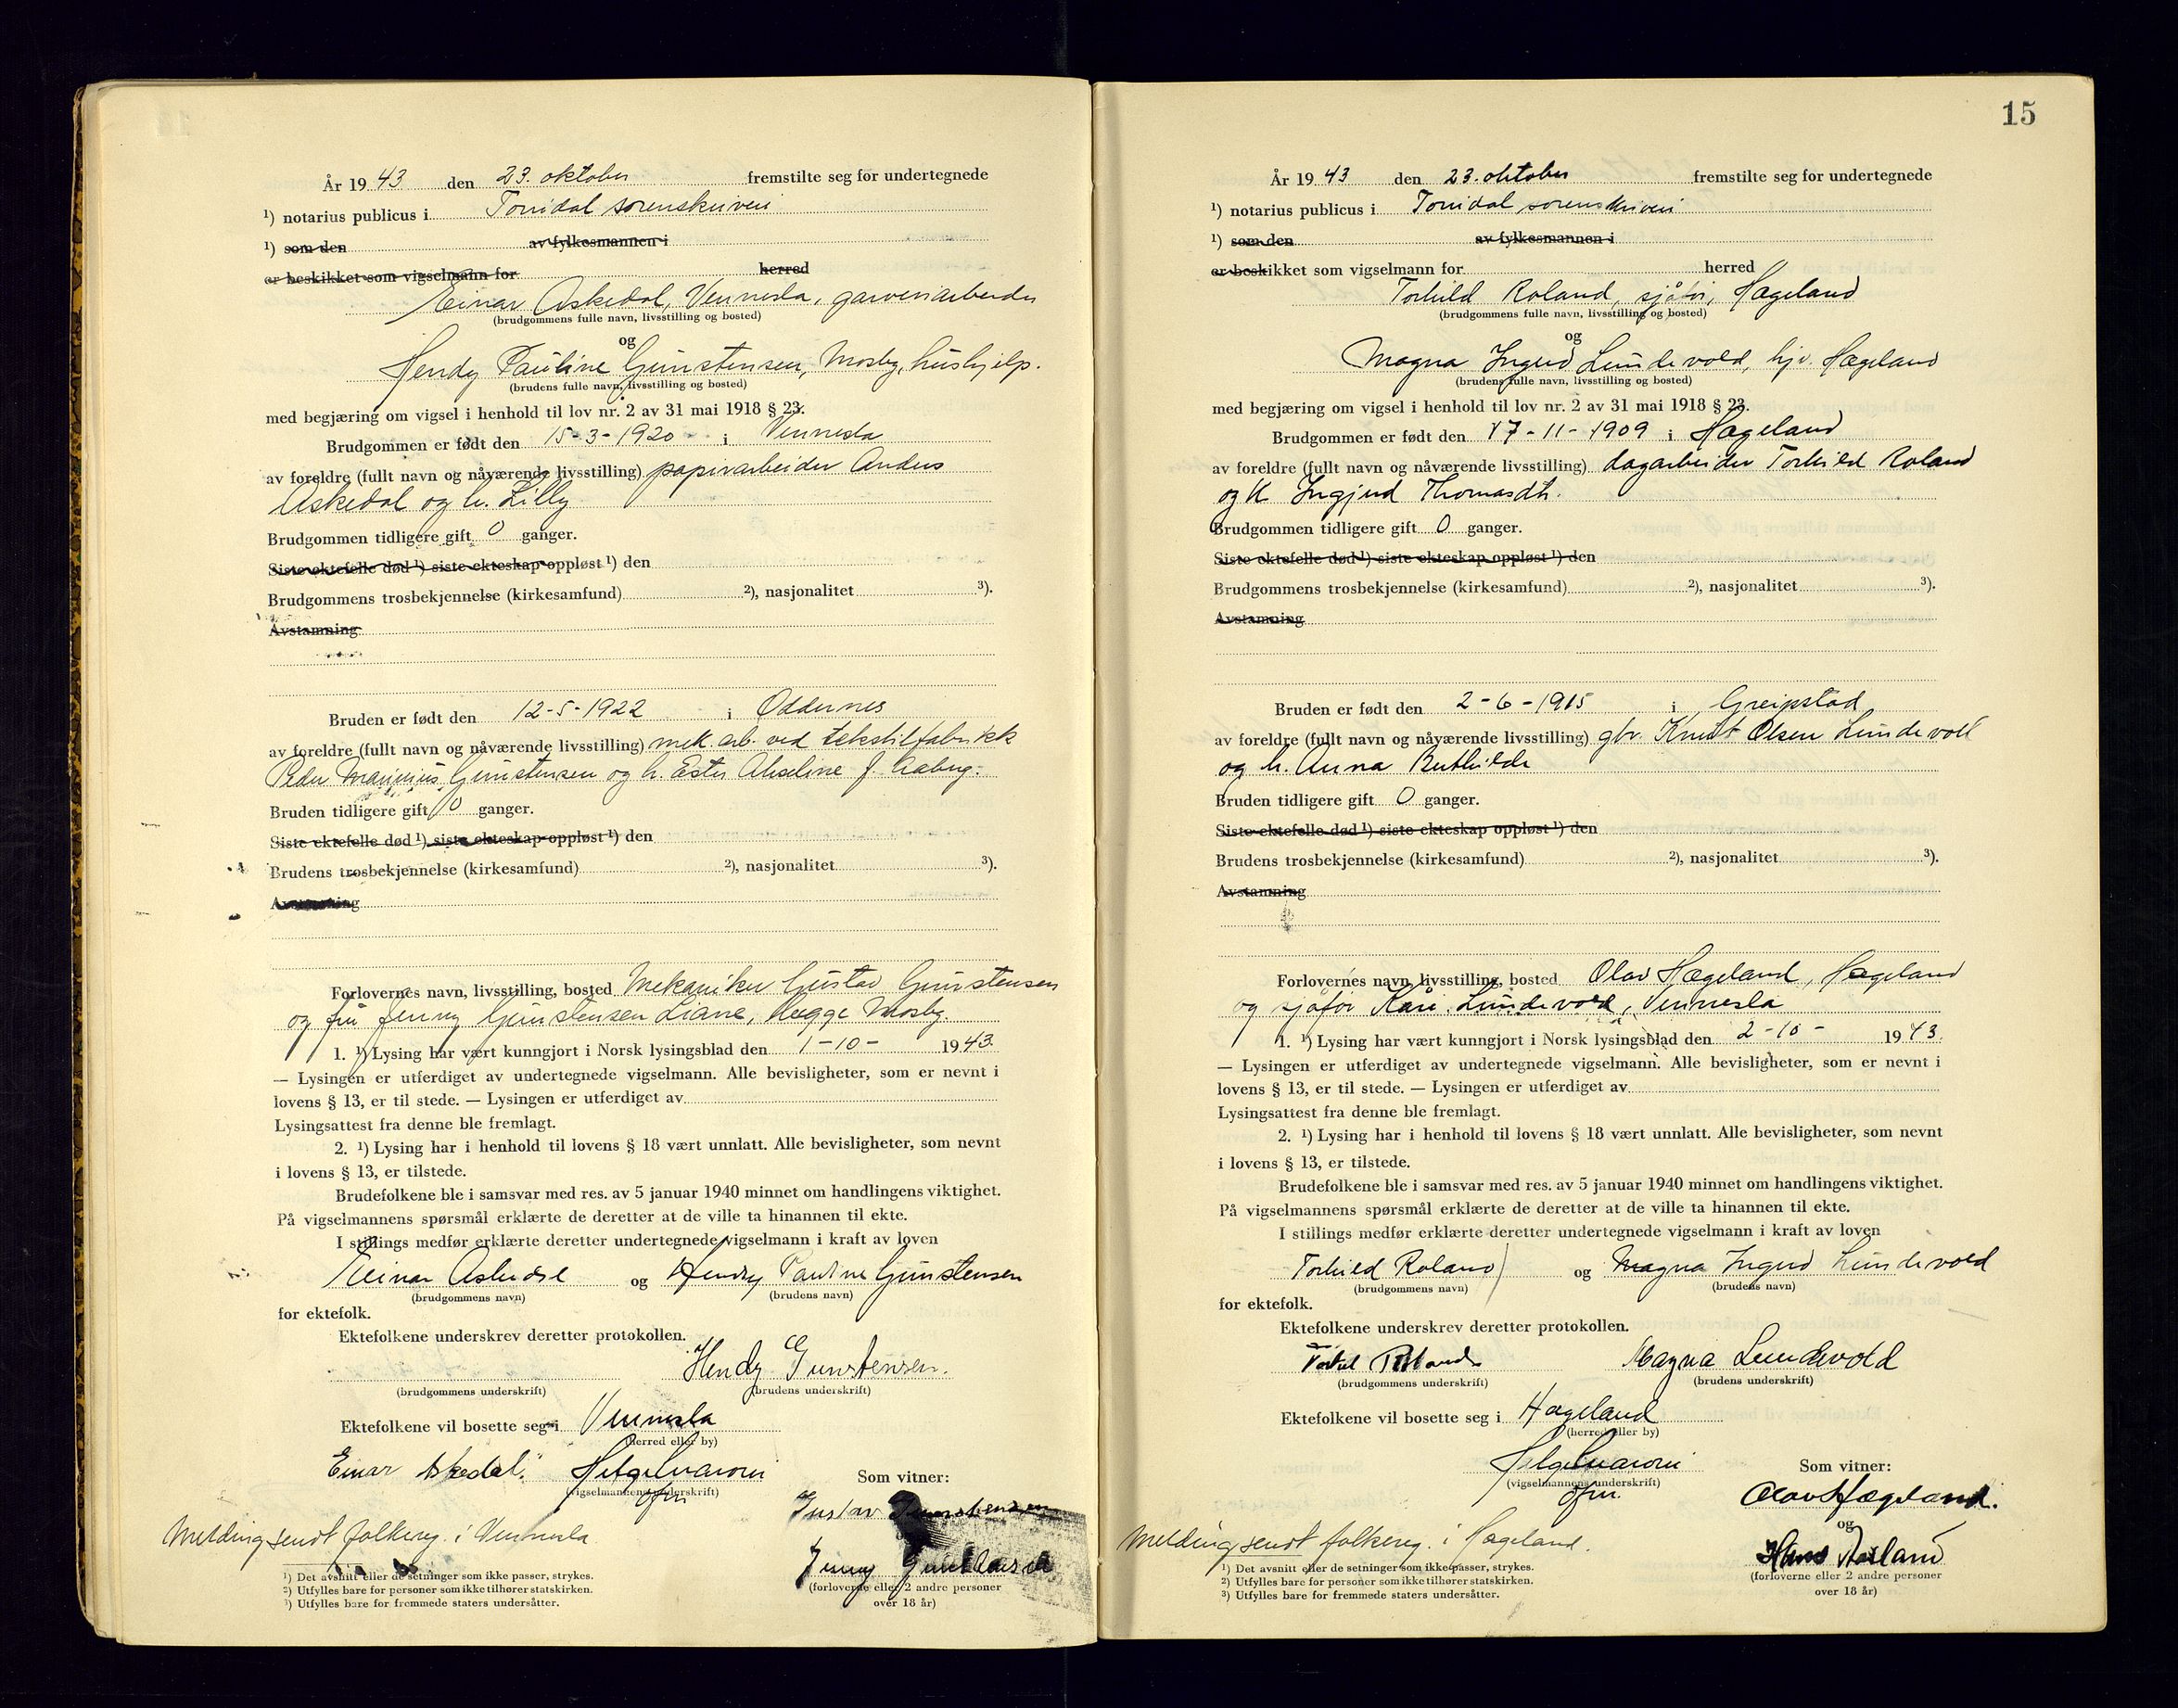 År 19 43 den 23. oktober fremstilte seg for undertegnede
¹) notarius publicus i Torridal sorenskriveri
¹) som den av fylkesmannen i
er beskikket som vigselmann for herred
Einar Askedal, Vennesla, garveriarbeider
(brudgommens fulle navn, livsstilling og bosted)
og
Hendy Pauline Gunstensen, Mosby, hushjelp.
(brudens fulle navn, livsstilling og bosted)
med begjæring om vigsel i henhold til lov nr. 2 av 31 mai 1918 § 23.
Brudgommen er født den 15-3-1920 i Vennesla
av foreldre (fullt navn og nåværende livsstilling) papirarbeider Anders
Askedal og h. Lilly
Brudgommen tidligere gift 0 ganger.
Siste ektefelle død ¹) siste ekteskap oppløst ¹) den
Brudgommens trosbekjennelse (kirkesamfund) ²), nasjonalitet ³).
Avstamning
Bruden er født den 12-5-1922 i Oddernes
av foreldre (fullt navn og nåværende livsstilling) mek. arb. ved tekstilfabrikk
Peder Marinius Gunstensen og h. Ester Akseline f. Aaberg.
Bruden tidligere gift 0 ganger.
Siste ektefelle død ¹) siste ekteskap oppløst ¹) den
Brudens trosbekjennelse (kirkesamfund) ²), nasjonalitet ³).
Avstamning
Forlovernes navn, livsstilling, bosted Mekaniker Gustav Gunstensen
og fru Jenny Gunstensen Liane, begge Mosby.
1. ¹) Lysing har vært kunngjort i Norsk lysingsblad den 1-10- 1943.
— Lysingen er utferdiget av undertegnede vigselmann. Alle bevisligheter, som er nevnt i
lovens § 13, er til stede. — Lysingen er utferdiget av
Lysingsattest fra denne ble fremlagt.
2. ¹) Lysing har i henhold til lovens § 18 vært unnlatt. Alle bevisligheter, som nevnt
i lovens § 13, er tilstede.
Brudefolkene ble i samsvar med res. av 5 januar 1940 minnet om handlingens viktighet.
På vigselmannens spørsmål erklærte de deretter at de ville ta hinannen til ekte.
I stillings medfør erklærte deretter undertegnede vigselmann i kraft av loven
Einar Askedal og Hendy Pauline Gunstensen
(brudgommens navn) (brudens navn)
for ektefolk.
Ektefolkene underskrev deretter protokollen.
Hendy Gunstensen.
(brudgommens underskrift) (brudens underskrift)
Ektefolkene vil bosette seg i Vennesla
(herred eller by)
Einar Askedal.
(vigselmannens underskrift)
Som vitner:
Gustav Gunstensen
og
Jenny
(forloverne eller 2 andre personer
over 18 år)
Melding sendt folkereg. i Vennesla
¹) Det avsnitt eller de setninger som ikke passer, strykes.
²) Utfylles bare for personer som ikke tilhører statskirken.
³) Utfylles bare for fremmede staters undersåtter.
15
År 19 43 den 23. oktober fremstilte seg for undertegnede
¹) notarius publicus i Torridal sorenskriveri
¹) som den av fylkesmannen i
er beskikket som vigselmann for herred
Torkild Roland, sjåfør, Hægeland
(brudgommens fulle navn, livsstilling og bosted)
og
Magna Ingrid Lundevold, hjv. Hægeland
(brudens fulle navn, livsstilling og bosted)
med begjæring om vigsel i henhold til lov nr. 2 av 31 mai 1918 § 23.
Brudgommen er født den 17-11-1909 i Hægeland
av foreldre (fullt navn og nåværende livsstilling) dagarbeider Torkild Roland
og h. Ingjerd Thomasdtr.
Brudgommen tidligere gift 0 ganger.
Siste ektefelle død ¹) siste ekteskap oppløst ¹) den
Brudgommens trosbekjennelse (kirkesamfund) ²), nasjonalitet ³).
Avstamning
Bruden er født den 2-6-1915 i Greipstad
av foreldre (fullt navn og nåværende livsstilling) gbr. Knut Olsen Lundevold
og h. Anna Buthilde
Bruden tidligere gift 0 ganger.
Siste ektefelle død ¹) siste ekteskap oppløst ¹) den
Brudens trosbekjennelse (kirkesamfund) ²), nasjonalitet ³).
Avstamning
Forlovernes navn, livsstilling, bosted Olav Hægeland, Hægeland
og sjåfør Kåre Lundevold, Vennesla
1. ¹) Lysing har vært kunngjort i Norsk lysingsblad den 2-10- 1943.
— Lysingen er utferdiget av undertegnede vigselmann. Alle bevisligheter, som er nevnt i
lovens § 13, er til stede. — Lysingen er utferdiget av
Lysingsattest fra denne ble fremlagt.
2. ¹) Lysing har i henhold til lovens § 18 vært unnlatt. Alle bevisligheter, som nevnt
i lovens § 13, er tilstede.
Brudefolkene ble i samsvar med res. av 5 januar 1940 minnet om handlingens viktighet.
På vigselmannens spørsmål erklærte de deretter at de ville ta hinannen til ekte.
I stillings medfør erklærte deretter undertegnede vigselmann i kraft av loven
Torkild Roland og Magna Ingrid Lundevold
(brudgommens navn) (brudens navn)
for ektefolk.
Ektefolkene underskrev deretter protokollen.
Torkel Roland Magna Lundevold
(brudgommens underskrift) (brudens underskrift)
Ektefolkene vil bosette seg i Hægeland
(herred eller by)
(vigselmannens underskrift)
Som vitner:
Olav Hægeland.
og
Hans
(forloverne eller 2 andre personer
over 18 år)
Melding sendt folkereg. i Hægeland.
¹) Det avsnitt eller de setninger som ikke passer, strykes.
²) Utfylles bare for personer som ikke tilhører statskirken.
³) Utfylles bare for fremmede staters undersåtter.